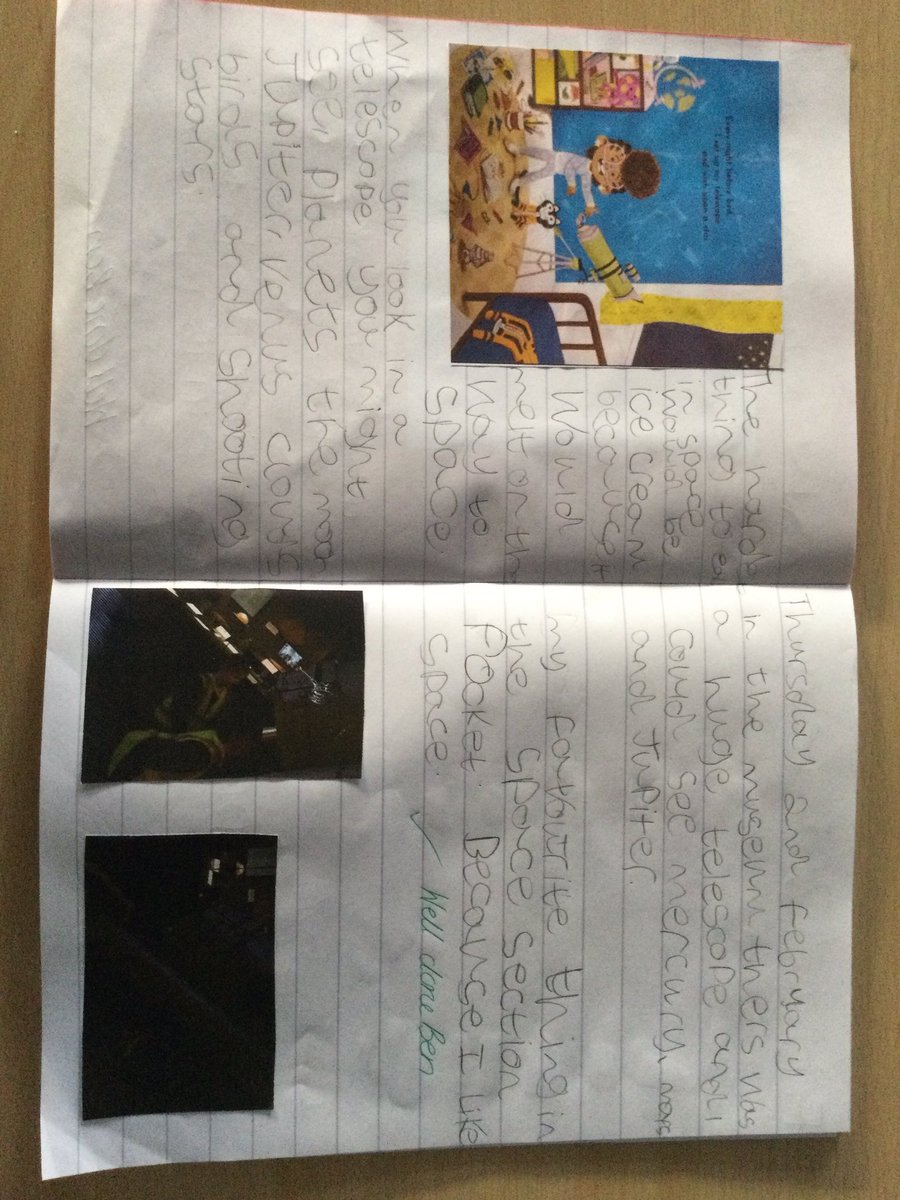 Every night before bed,
I set up my telescope
and look upon a star.
The hard
thing to ea
in space
would be
ice cream
because it
Would
melt on th
way to
Space.
When you look in a
telescope you might
see Planets the moon
Jupiter venus clouds
birds and shooting
stars.
Thursday 2nd February
in the museum thers was
a huge telescope and I
coud see mercury, mars
and Jupiter.
my favourite thing in
the space section
Pocket. Because I like
space.
✓ Well done Ben